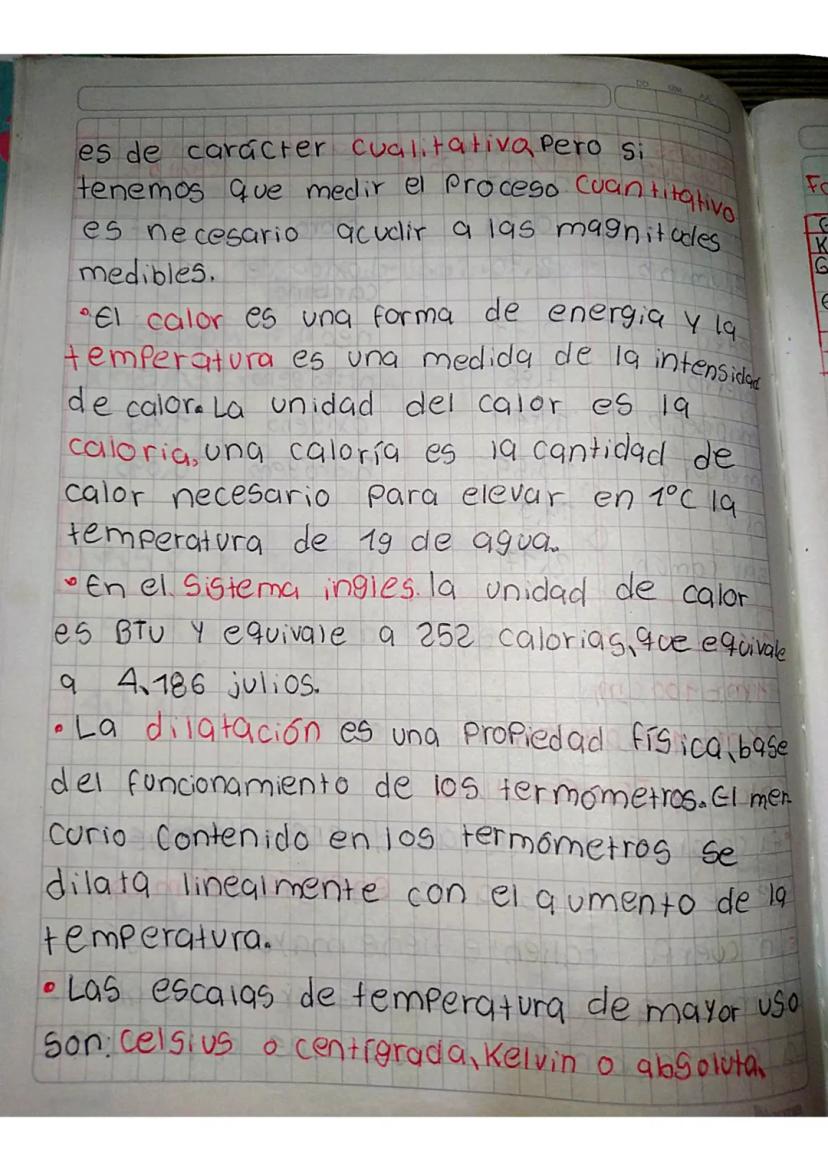 es de carácter cualitativa pero si
tenemos que medir el proceso cuantitativo
es necesario acudir a las magnitudes
medibles.
• El calor es una forma de energia y la
temperatura es una medida de la intensidad
de calor. La unidad del calor es la
caloria, una caloría es la cantidad de
calor necesario para elevar en 1°C la
temperatura de 1g de agua.
• En el sistema ingles. la unidad de calor
es BTU y equivale a 252 calorias, que equivale
a 4,186 julios.
• La dilatación es una propiedad física, base
del funcionamiento de los termometros. El mer
curio contenido en los termómetros se
dilata linealmente con el aumento de la
temperatura.
• Las escalas de temperatura de mayor uso
son: celsius o centígrada, Kelvin o absoluta,